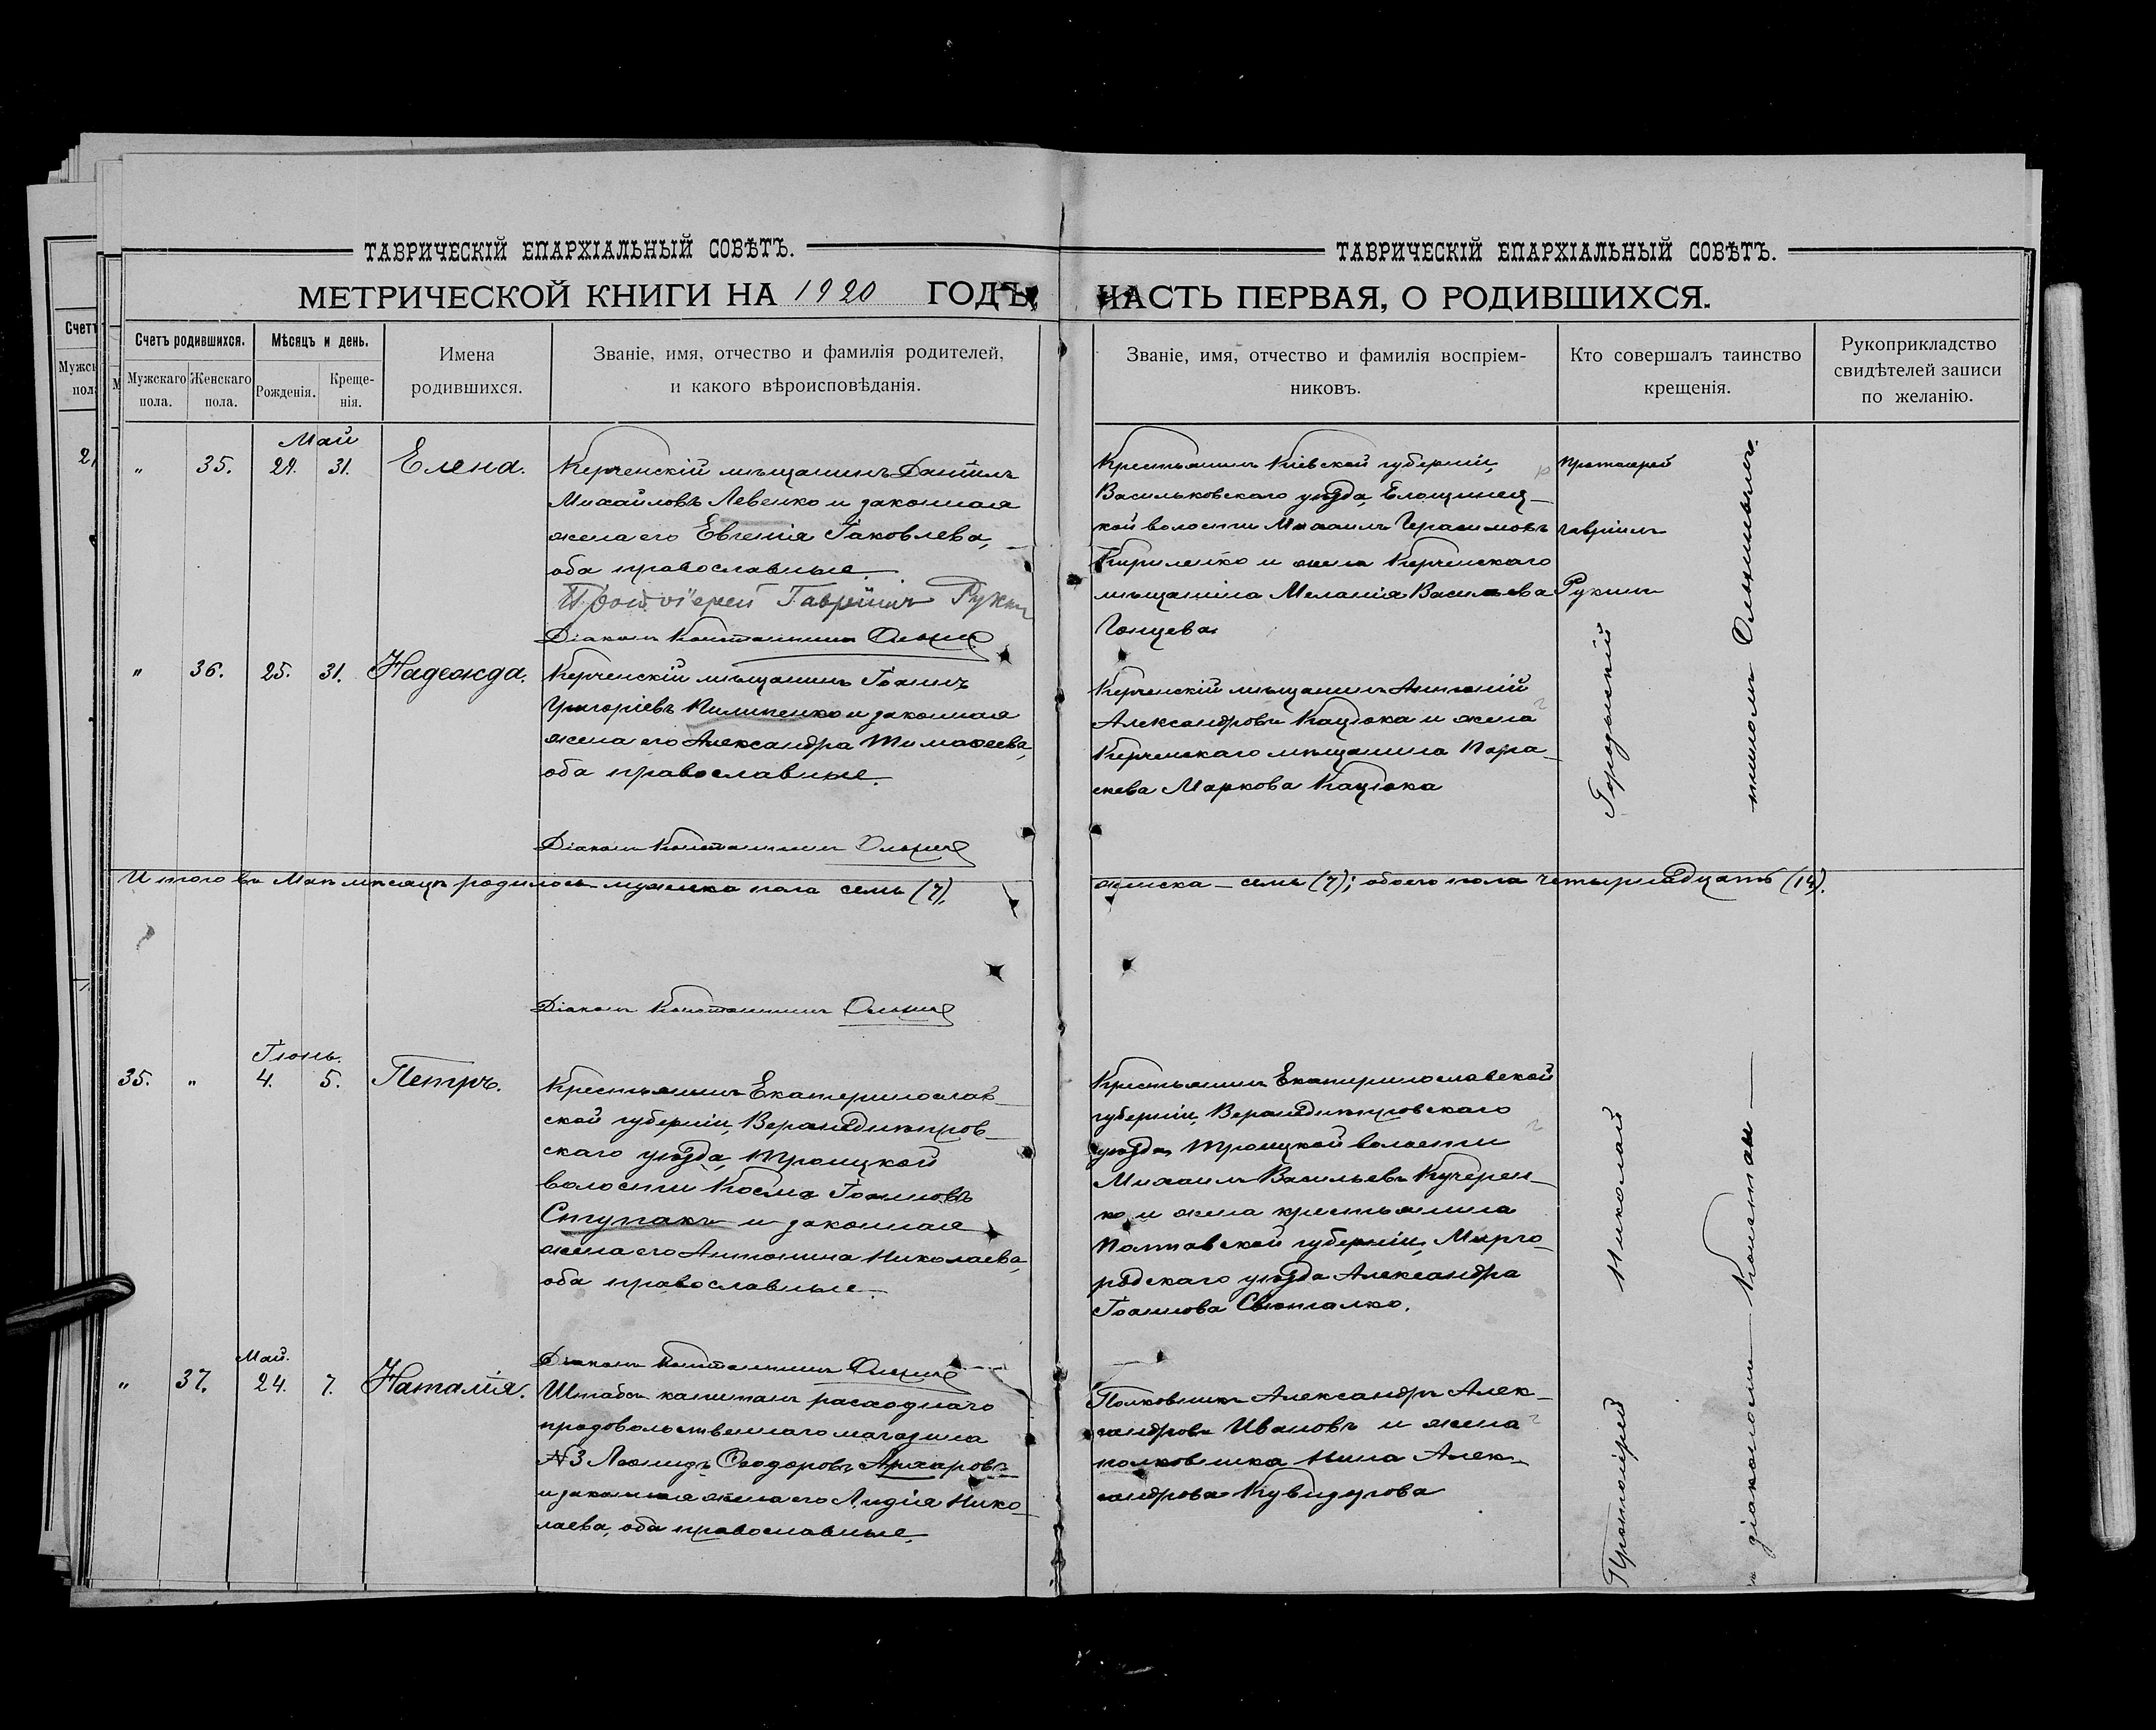 ТАВРИЧЕСКІЙ ЕПАРХІАЛЬНЫЙ СОВѢТЪ.
МЕТРИЧЕСКОЙ КНИГИ НА 1920 ГОДЪ,
Счетъ родившихся.
Мужскаго пола.
Женскаго пола.
Мѣсяцъ и день.
Рожденія.
Креще-
нія.
Имена
родившихся.
Званіе, имя, отчество и фамилія родителей,
и какого вѣроисповѣданія.
Май
" 35. 29. 31. Елена.
Керченскій мѣщанинъ Даніилъ
Михайловъ Левенко и законная
жена его Евгенія Іаковлева,
оба православные.
Протоіерей Гавріилъ Рукин
Діаконъ Константинъ
" 36. 25. 31. Надежда.
Керченскій мѣщанинъ Іоаннъ
Григоріевъ Пилипенко и законная
жена его Александра Тимофеева,
оба православные.
Діаконъ Константинъ
Итого въ Маѣ мѣсяцѣ родилось мужска пола семь (7),
Діаконъ Константинъ
Іюнь.
35. " 4. 5. Петръ.
Крестьянинъ Екатеринослав-
ской губерніи, Верхнеднѣпров-
скаго уѣзда, Троицкой
волости Косма Іоанновъ
Ступакъ и законная
жена его Антонина Николаева,
оба православные.
Діаконъ Константинъ
Май.
" 37. 24. 7. Наталія.
Штабсъ капитанъ расходнаго
продовольственнаго магазина
№3 Леонидъ Ѳеодоровъ Архаровъ
и законная жена его Лидія Нико-
лаева, оба православные.
ТАВРИЧЕСКІЙ ЕПАРХІАЛЬНЫЙ СОВѢТЪ.
ЧАСТЬ ПЕРВАЯ, О РОДИВШИХСЯ.
Званіе, имя, отчество и фамилія воспріем-
никовъ.
Кто совершалъ таинство
крещенія.
Рукоприкладство
свидѣтелей записи
по желанію.
Крестьянинъ Кіевской губерніи,
Васильковскаго уѣзда,
кой волости Михаилъ Герасимовъ
Кириленко и жена Керченскаго
мѣщанина Меланія Васильева
Гонцева
Протоіерей
Гавріилъ
Рукинъ
Керченскій мѣщанинъ Антоній
Александровъ Кацюка и жена
Керченскаго мѣщанина Пара-
скева Маркова Кацюка
женска - семь (7); обоего пола четырнадцать (14).
Крестьянинъ Екатеринославской
губерніи, Верхнеднѣпровскаго
уѣзда, Троицкой волости
Михаилъ Васильевъ Кучерен-
ко и жена крестьянина
Полтавской губерніи, Мирго-
родскаго уѣзда Александра
Іоаннова
Полковникъ Александръ Алек-
сандровъ Ивановъ и жена
полковника Нина Алек-
сандрова
Протоіерей Николай
съ діакономъ Констан-